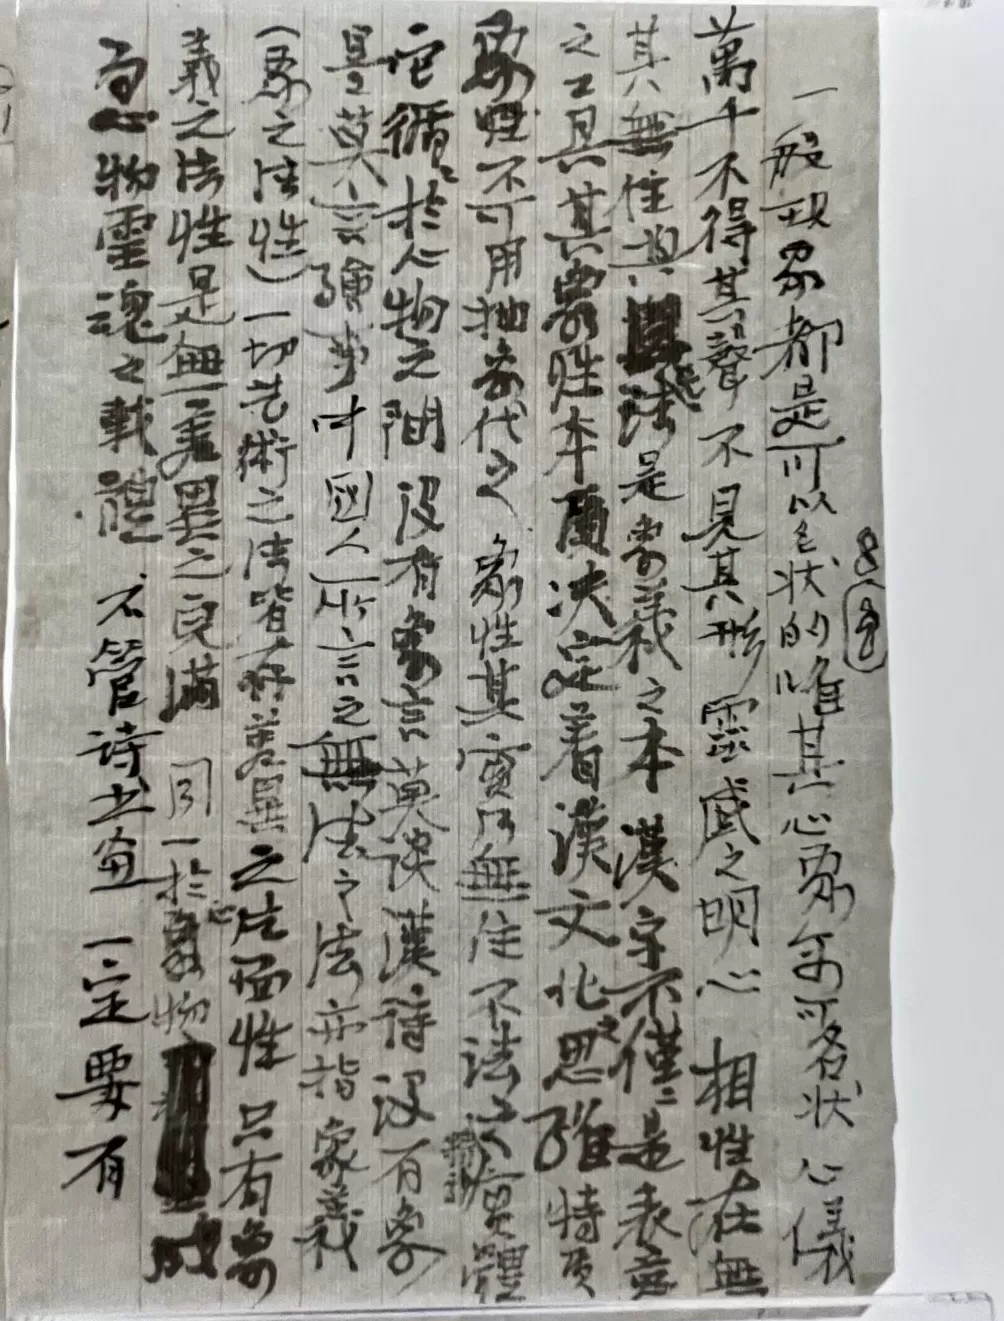 一般現象都是可以名狀的唯其心象不可名狀 心儀
萬千不得其聲不見其形 靈感之明心 相性在無
其無住 法是象義之本 漢字不僅是表意
之工具其具象性本質決定着漢文化之思維特質
象性不可用抽象代之 象性其實乃無住不法之 實體
它循於心物之間 沒有象言莫談漢詩 沒有象
是莫言繪事 中國人所言之無法之法亦指象義
(象之法性)一切藝術之法皆有差異之片面性 只有象
義之法性是無一差異之完滿 同一於象物 成
為心物靈魂之載體 不管詩書畫 一定要有
8